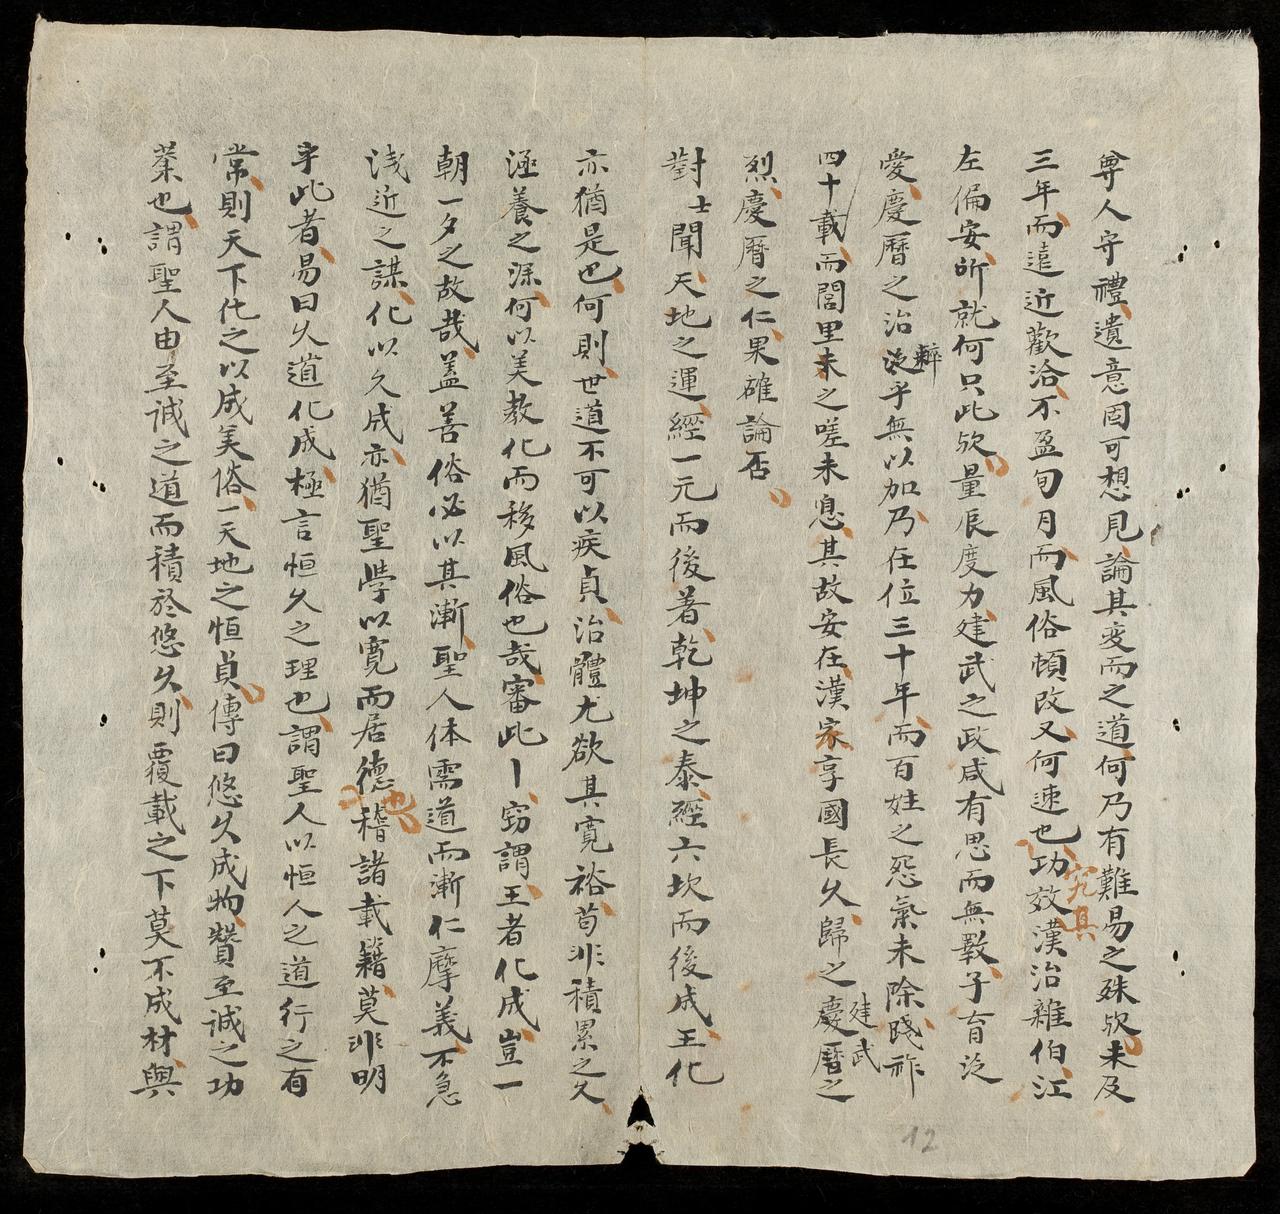 尊人守禮遺意固可想見論其変而之道何乃有難易之殊欤未及
三年而遠近歡洽不盈旬月而風俗頓改又何速也究其功效漢治雜伯江
左偏安所就何只此欤量長度力建武之政咸有思而無斁子育泛
愛慶曆之治粹乎無以加乃在位三十年而百姓之怨氣未除踐祚
四十載而閭里未之嗟未息其故安在漢家享國長久歸之建武慶曆之
烈慶曆之仁果確論否
對士聞天地之運經一元而後著乾坤之泰經六坎而後成王化
亦猶是也何則世道不可以疾貞治體尤欲其寬裕苟非積累之久
涵養之深何以美教化而移風俗也哉審此丨窃謂王者化成豈一
朝一夕之故哉盖善俗必以其漸聖人体需道而漸仁摩義不急
浅近之謀化以久成亦猶聖學以寬而居德也稽諸載籍莫非明
乎此者易曰久道化成極言恒久之理也謂聖人以恒人之道行之有
常則天下化之以成美俗一天地之恒貞傳曰悠久成物贊至誠之功
業也謂聖人由至誠之道而積於悠久則覆載之下莫不成材與
12